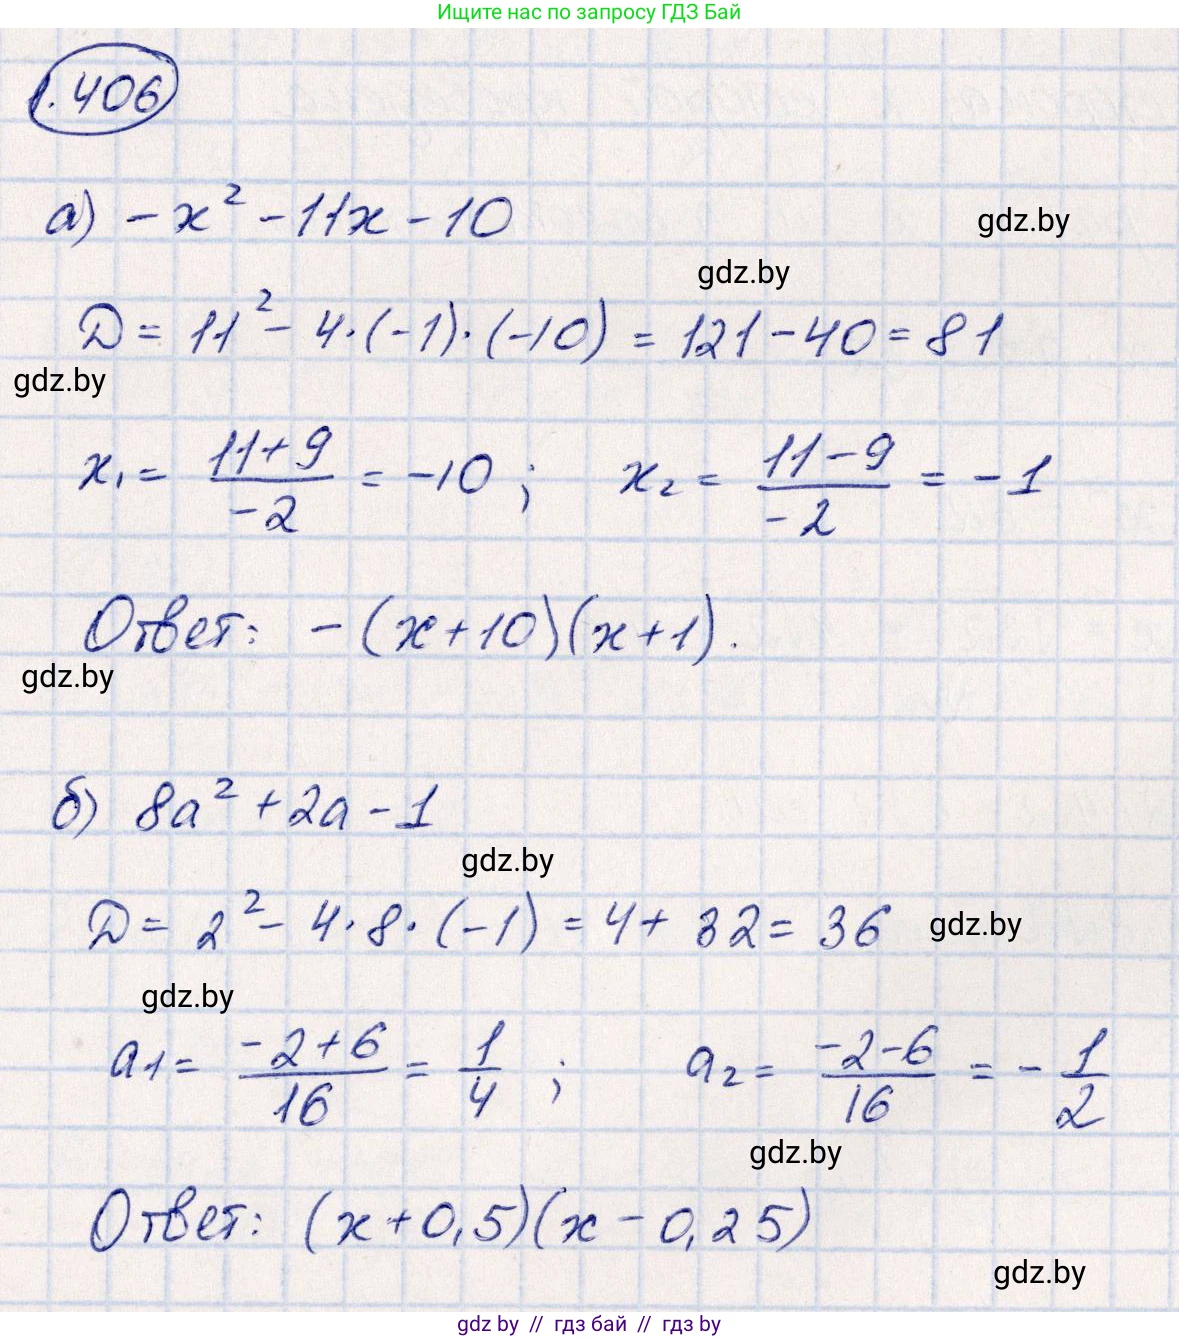 Ищите нас по запросу ГДЗ Бай
1.406
а) -x² - 11x - 10
gdz.by
gdz.by
D = 11² - 4·(-1)·(-10) = 121 - 40 = 81
gdz.by
x₁ = (11+9)/(-2) = -10 ; x₂ = (11-9)/(-2) = -1
Ответ: -(x+10)(x+1).
gdz.by
б) 8a² + 2a - 1
gdz.by
D = 2² - 4·8·(-1) = 4 + 32 = 36
gdz.by
gdz.by
a₁ = (-2+6)/16 = 1/4 ; a₂ = (-2-6)/16 = -1/2
gdz.by
Ответ: (x+0,5)(x-0,25)
gdz.by
gdz by // гдз бай // гдз by